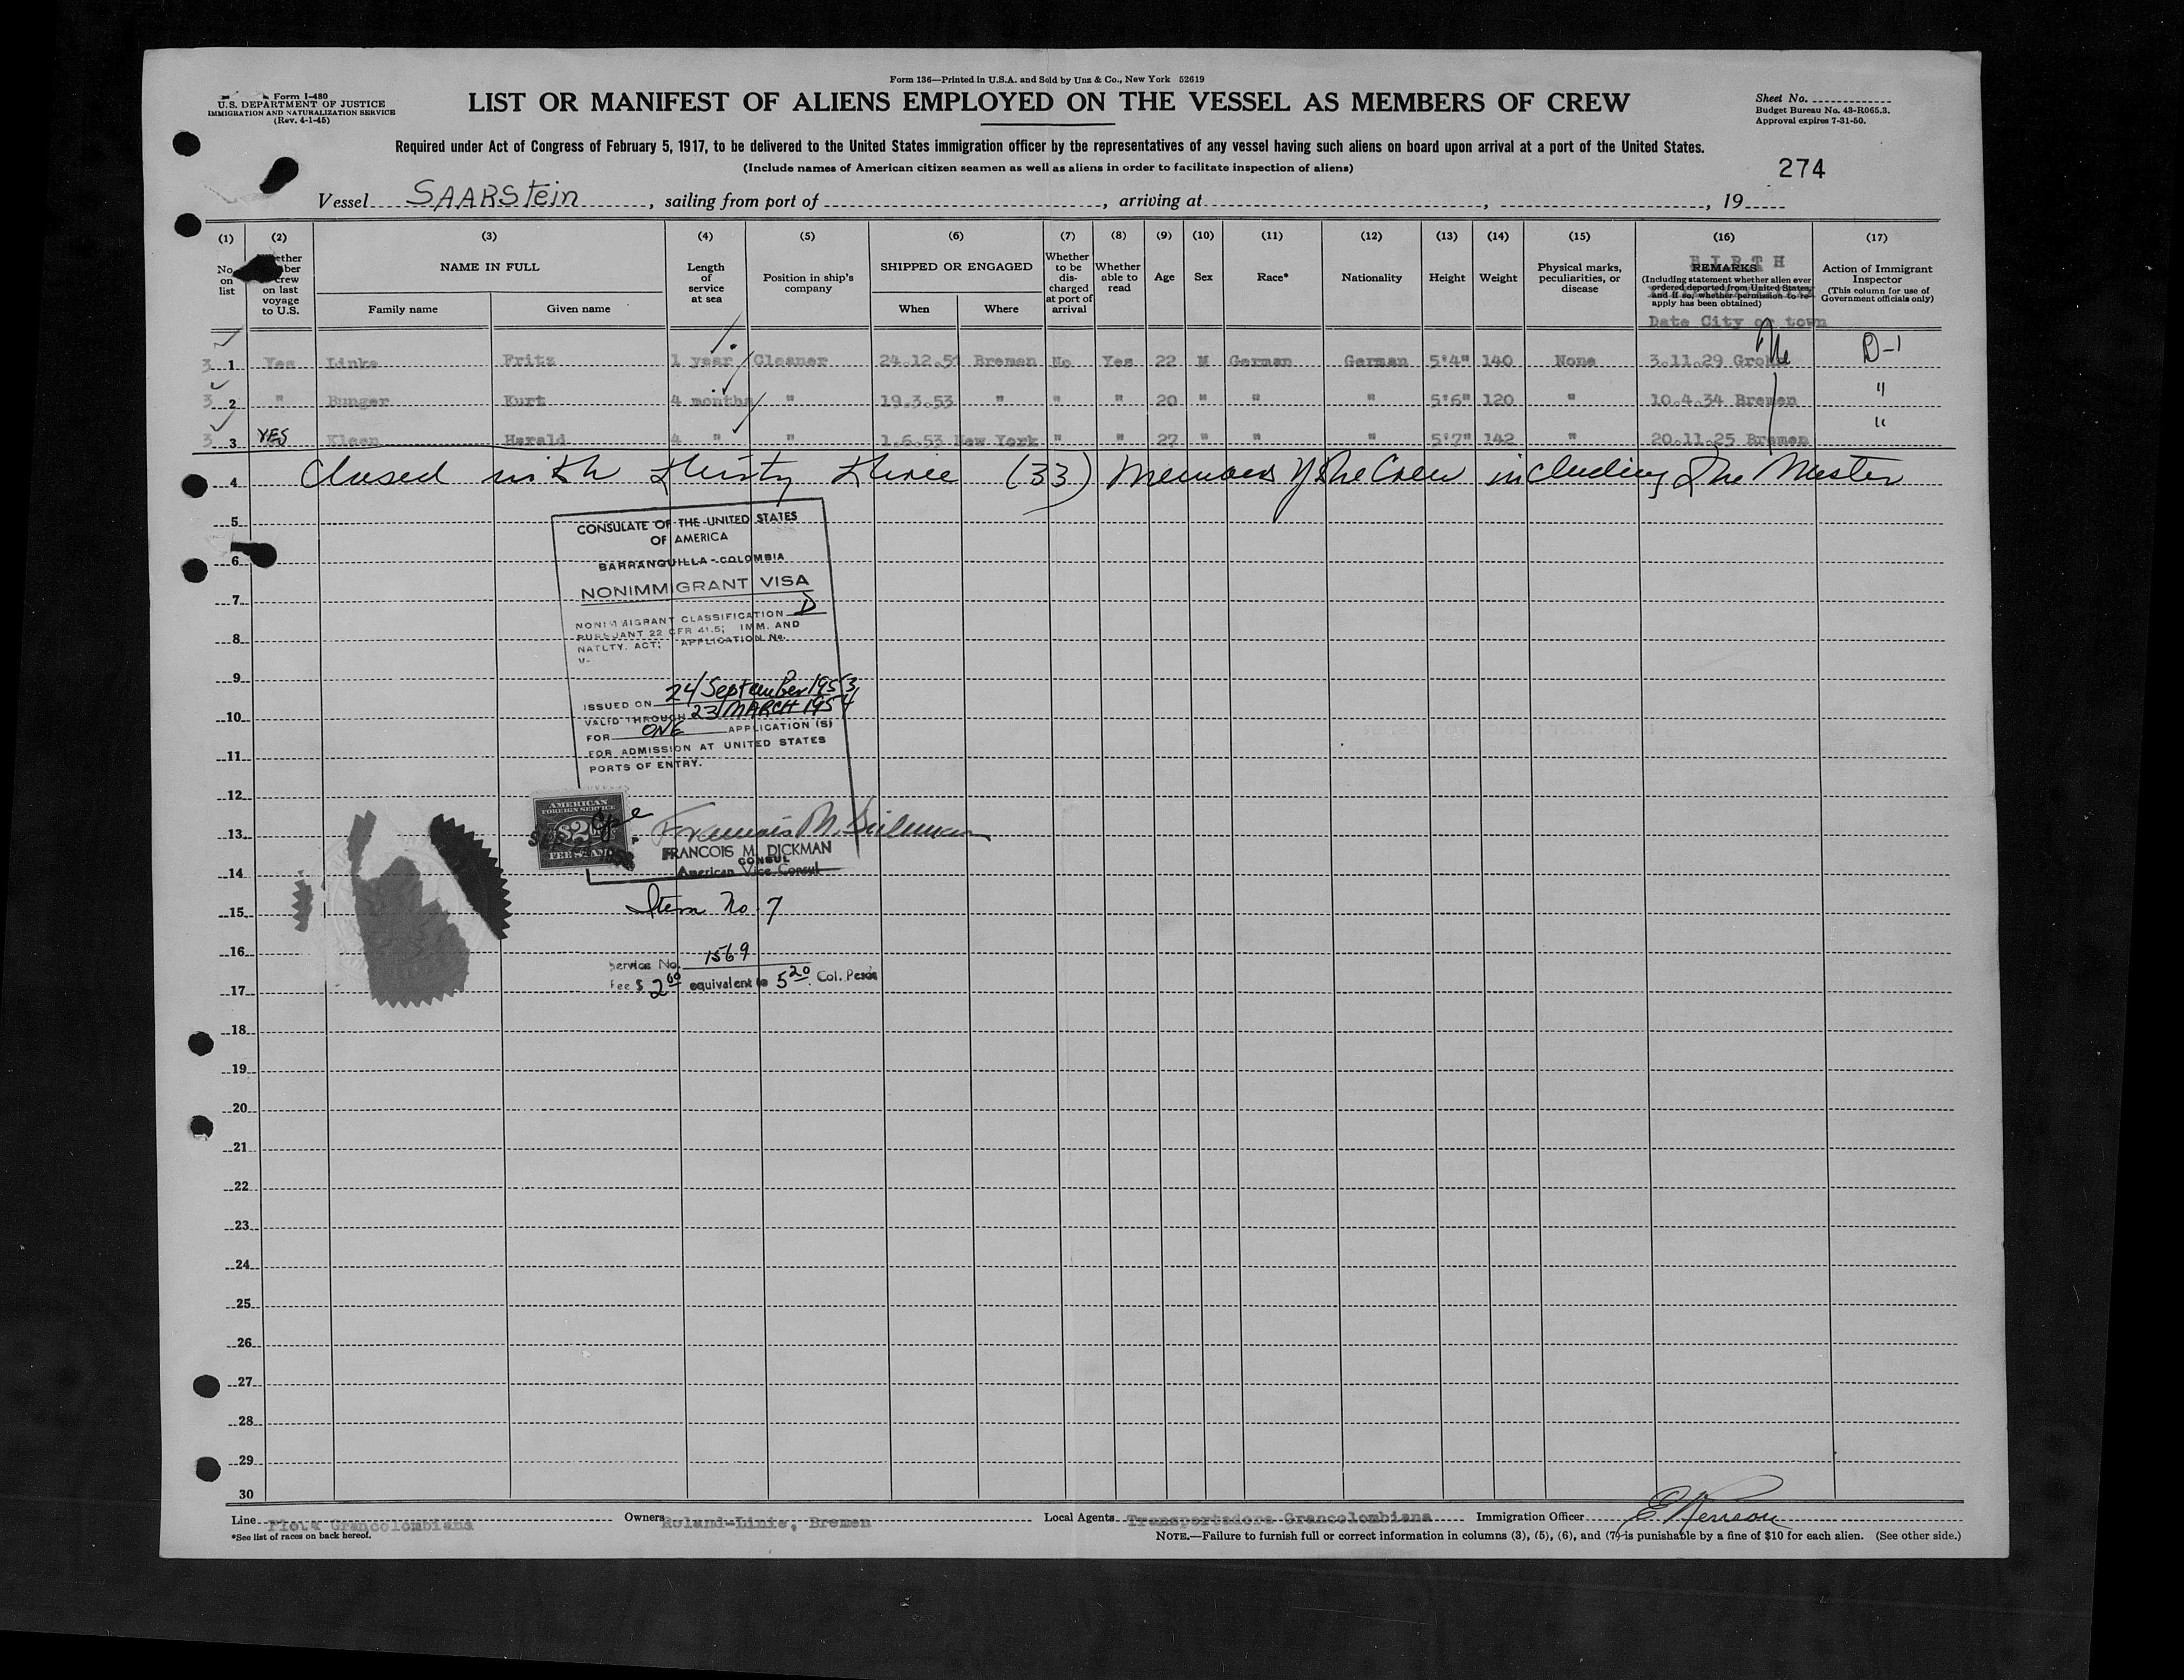 Form 136—Printed in U.S.A. and Sold by Unz & Co., New York 52619
Form I-480
U.S. DEPARTMENT OF JUSTICE
IMMIGRATION AND NATURALIZATION SERVICE
(Rev. 4-1-45)
LIST OR MANIFEST OF ALIENS EMPLOYED ON THE VESSEL AS MEMBERS OF CREW
Sheet No.
Budget Bureau No. 43-R065.3.
Approval expires 7-31-50.
Required under Act of Congress of February 5, 1917, to be delivered to the United States immigration officer by the representatives of any vessel having such aliens on board upon arrival at a port of the United States.
(Include names of American citizen seamen as well as aliens in order to facilitate inspection of aliens)
274
Vessel SAARStein, sailing from port of , arriving at , , 19
(1) (2) (3) (4) (5) (6) (7) (8) (9) (10) (11) (12) (13) (14) (15) (16) (17)
No. on list
crew on last voyage to U.S.
NAME IN FULL
Family name Given name
Length of service at sea
Position in ship's company
SHIPPED OR ENGAGED
When Where
Whether to be discharged at port of arrival
Whether able to read
Age Sex Race* Nationality Height Weight
Physical marks, peculiarities, or disease
BIRTH
REMARKS
(Including statement whether alien ever ordered deported from United States, and if so, whether permission to reapply has been obtained)
Date City or town
Action of Immigrant Inspector
(This column for use of Government officials only)
3 1 Yes Linke Fritz 1 year Cleaner 24.12.51 Bremen No Yes 22 M German German 5'4" 140 None 3.11.29 D-1
3 2 " Bunger Kurt 4 months " 19.3.53 " " " 20 " " " 5'6" 120 " 10.4.34 Bremen "
3 3 YES Kleen Harald 4 " " 1.6.53 New York " " 27 " " " 5'7" 142 " 20.11.25 Bremen "
4 Closed with thirty three (33) Members of the Crew including the Master
5
CONSULATE OF THE UNITED STATES
OF AMERICA
BARRANQUILLA - COLOMBIA
6
NONIMMIGRANT VISA
7
NONIMMIGRANT CLASSIFICATION D
PURSUANT 22 CFR 41.5; IMM. AND
8
NATLTY. ACT; APPLICATION No.
V-
9
ISSUED ON 24 September 1953
VALID THROUGH 23 MARCH 1954
10
FOR ONE APPLICATION (S)
FOR ADMISSION AT UNITED STATES
11
PORTS OF ENTRY.
12
AMERICAN
FOREIGN SERVICE
$2
FEE STAMP
13
Francois M. Dickman
FRANCOIS M. DICKMAN
CONSUL
American Vice Consul
14
Item No. 7
15
16
Service No. 1569
Fee $ 2.00 equivalent to 5.20 Col. Pesos
17
18
19
20
21
22
23
24
25
26
27
28
29
30
Line Flota Grancolombiana Owners Roland-Linie, Bremen Local Agents Transportadora Grancolombiana Immigration Officer
*See list of races on back hereof.
NOTE.—Failure to furnish full or correct information in columns (3), (5), (6), and (7) is punishable by a fine of $10 for each alien. (See other side.)